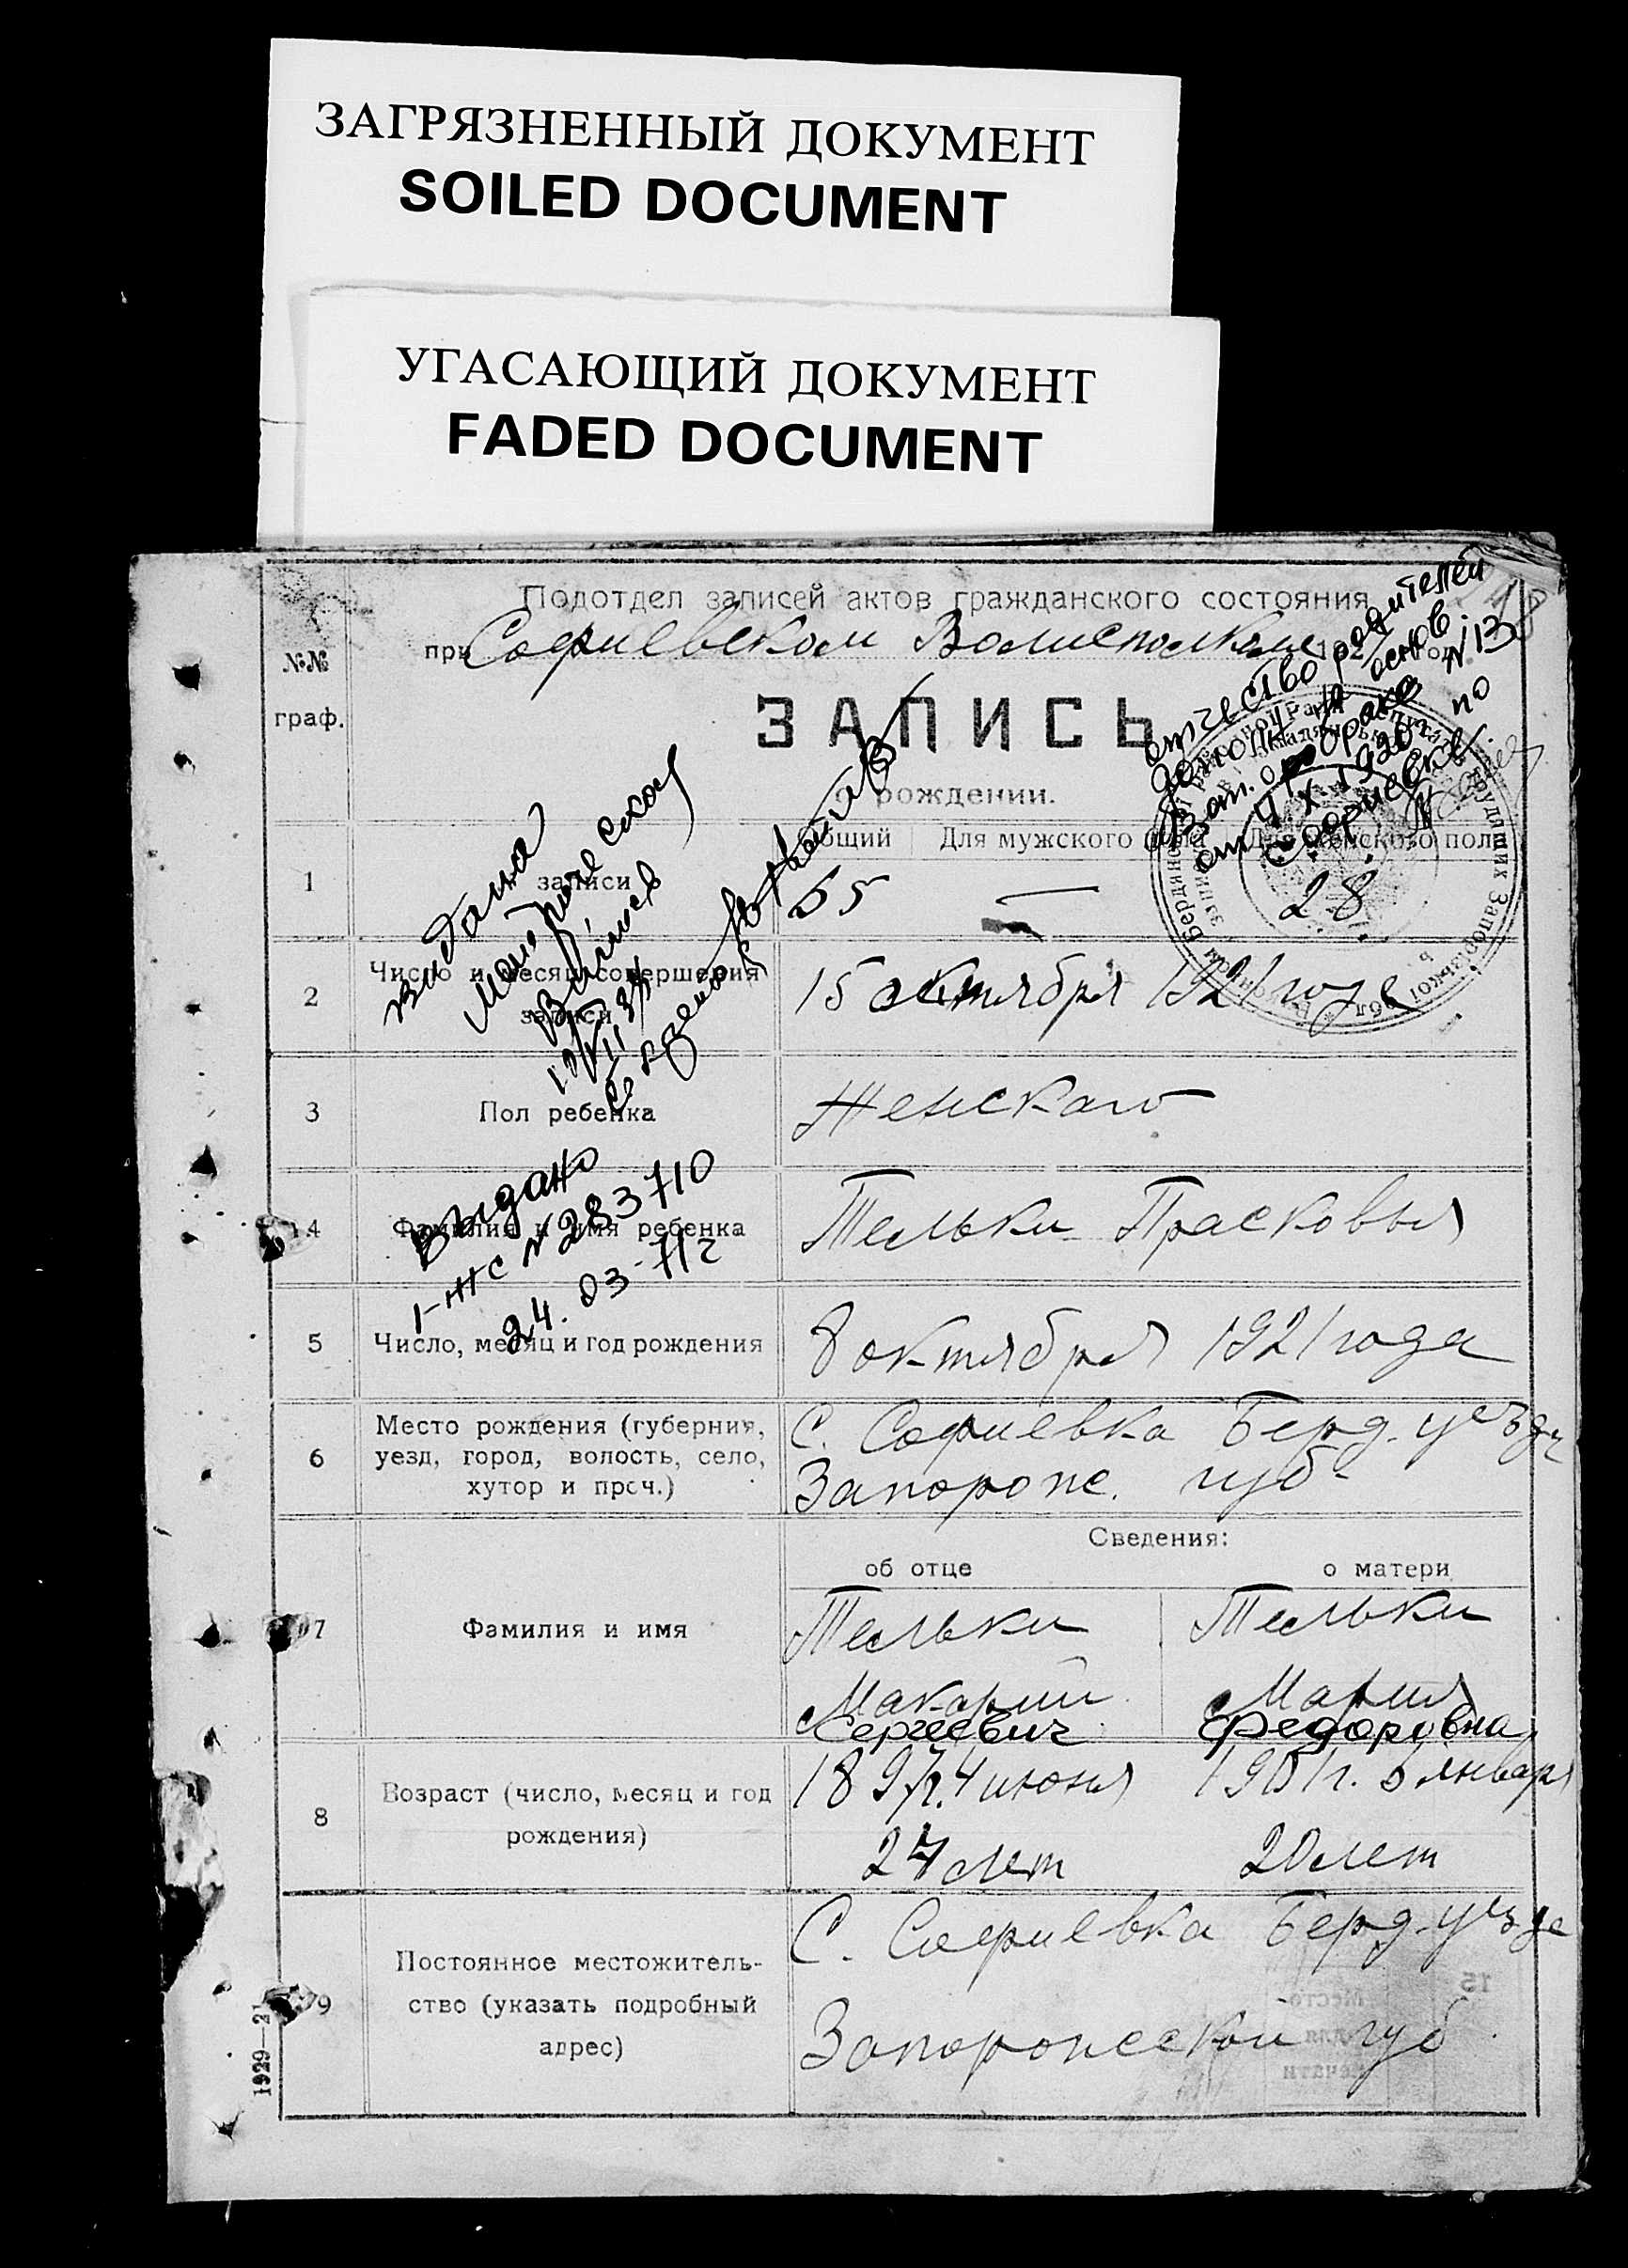 ЗАГРЯЗНЕННЫЙ ДОКУМЕНТ
SOILED DOCUMENT
УГАСАЮЩИЙ ДОКУМЕНТ
FADED DOCUMENT
Подотдел записей актов гражданского состояния
при Софиевском Волисполкоме 1921 год
№№ граф.
ЗАПИСЬ
о рождении.
отчество родителей
дополн. на основ.
Зап. о браке №13
от 4/X 1920 по
Софиевск.
общий Для мужского пола Для женского пола
1 записи 55 — 28
2 Число и месяц совершения записи 15 октября 1921 года
3 Пол ребенка Женскаго
4 Фамилия и имя ребенка Тельки Прасковья
5 Число, месяц и год рождения 8 октября 1921 года
6 Место рождения (губерния, уезд, город, волость, село, хутор и проч.) С. Софиевка Берд. уезда
Запорож. губ.
Видано
Выдано
I-ЖС № 283710
24.03-71г
Сведения:
об отце о матери
7 Фамилия и имя Тельки Тельки
Макарий Мария
Сергеевич Федоровна
8 Возраст (число, месяц и год рождения) 1897г. 4 июня 1901г. 6 января
24 лет 20 лет
9 Постоянное местожительство (указать подробный адрес) С. Софиевка Берд. уезда
Запорожской губ
1929—21
15
Место
для
печати